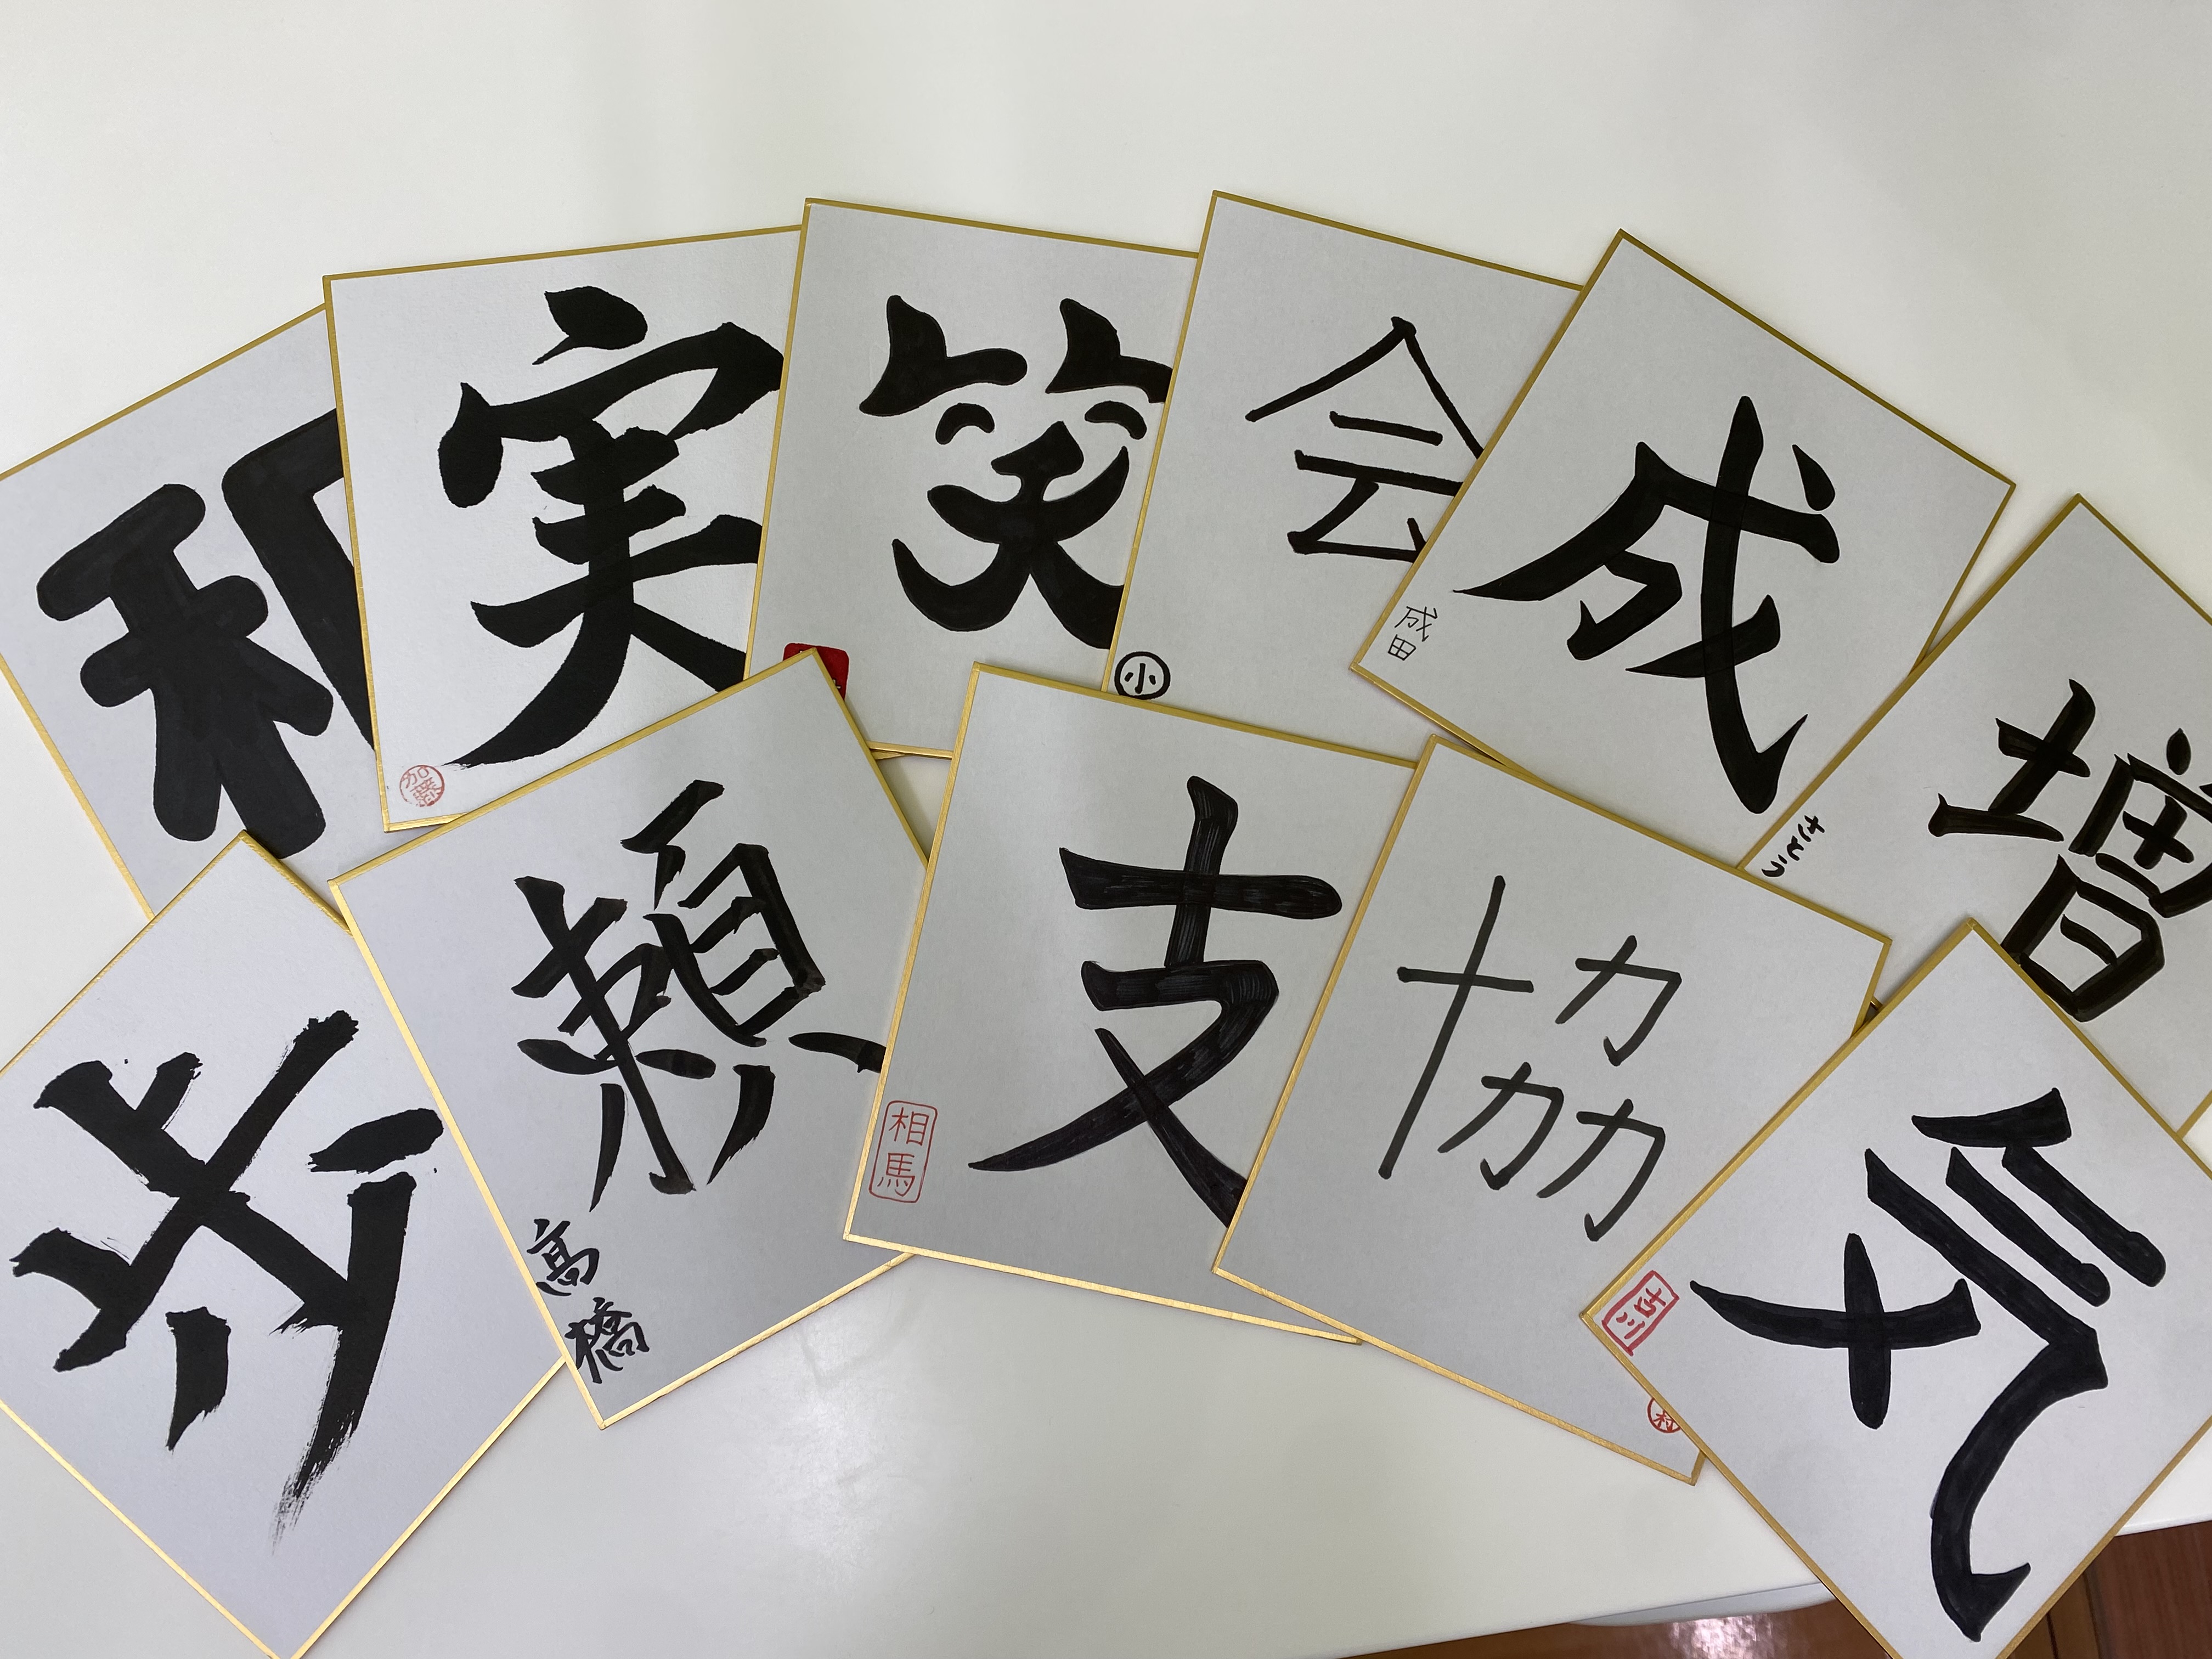 実
加藤
笑
会
小
成
成田
増
さとう
歩
頼
高橋
支
相馬
協
村
気
古川